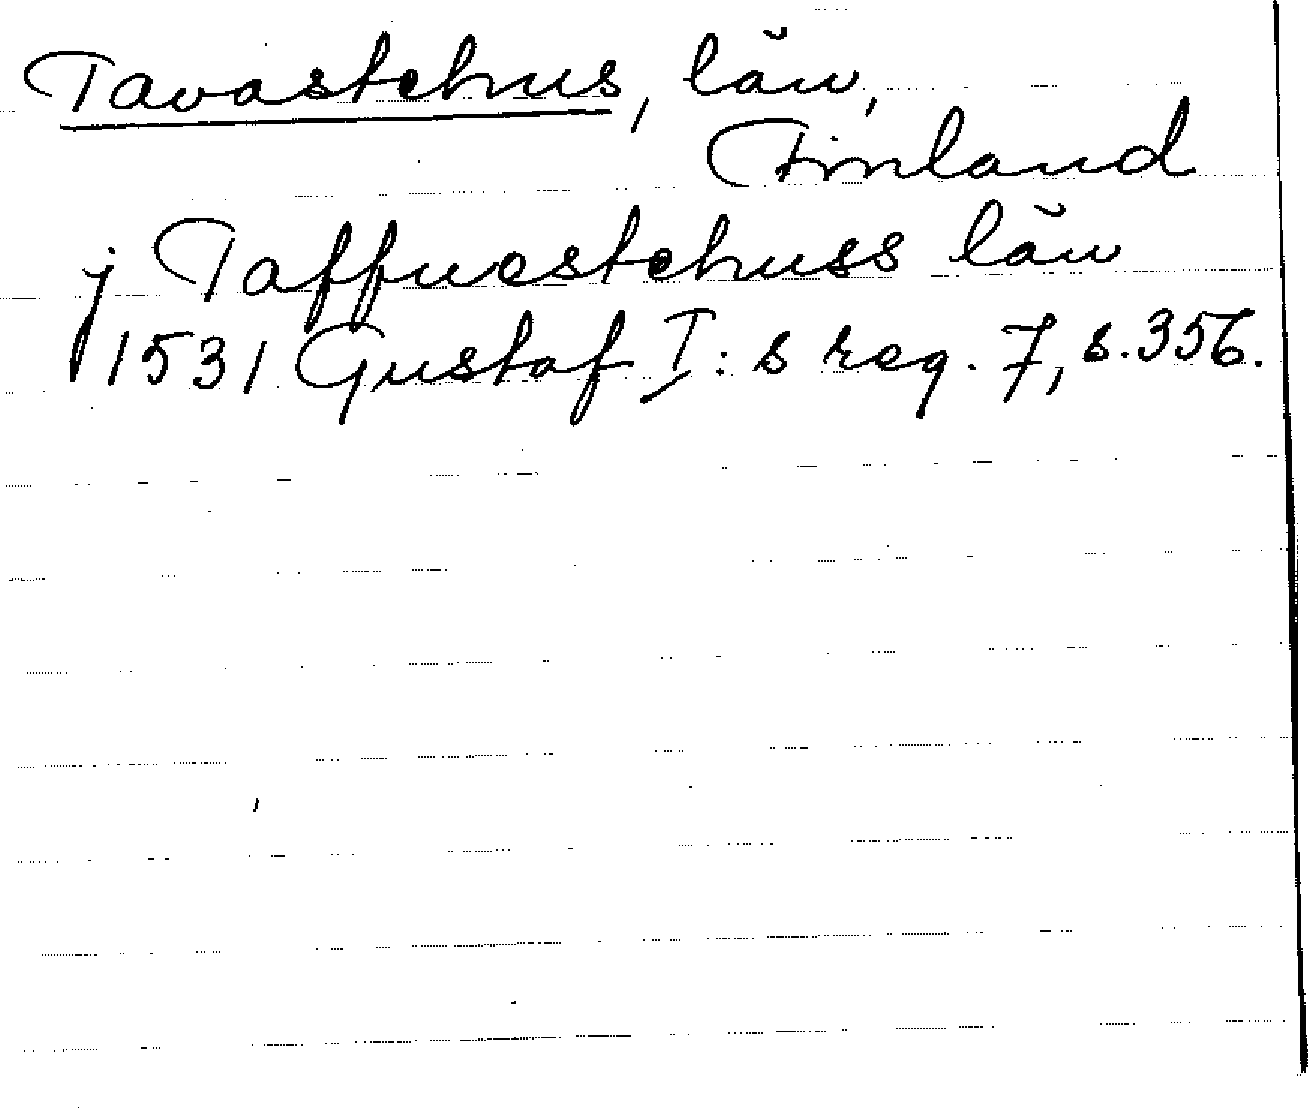 Tavastehus, län,
Finland
j Taffuestehuss län
1531 Gustaf I:s reg. 7, s. 356.